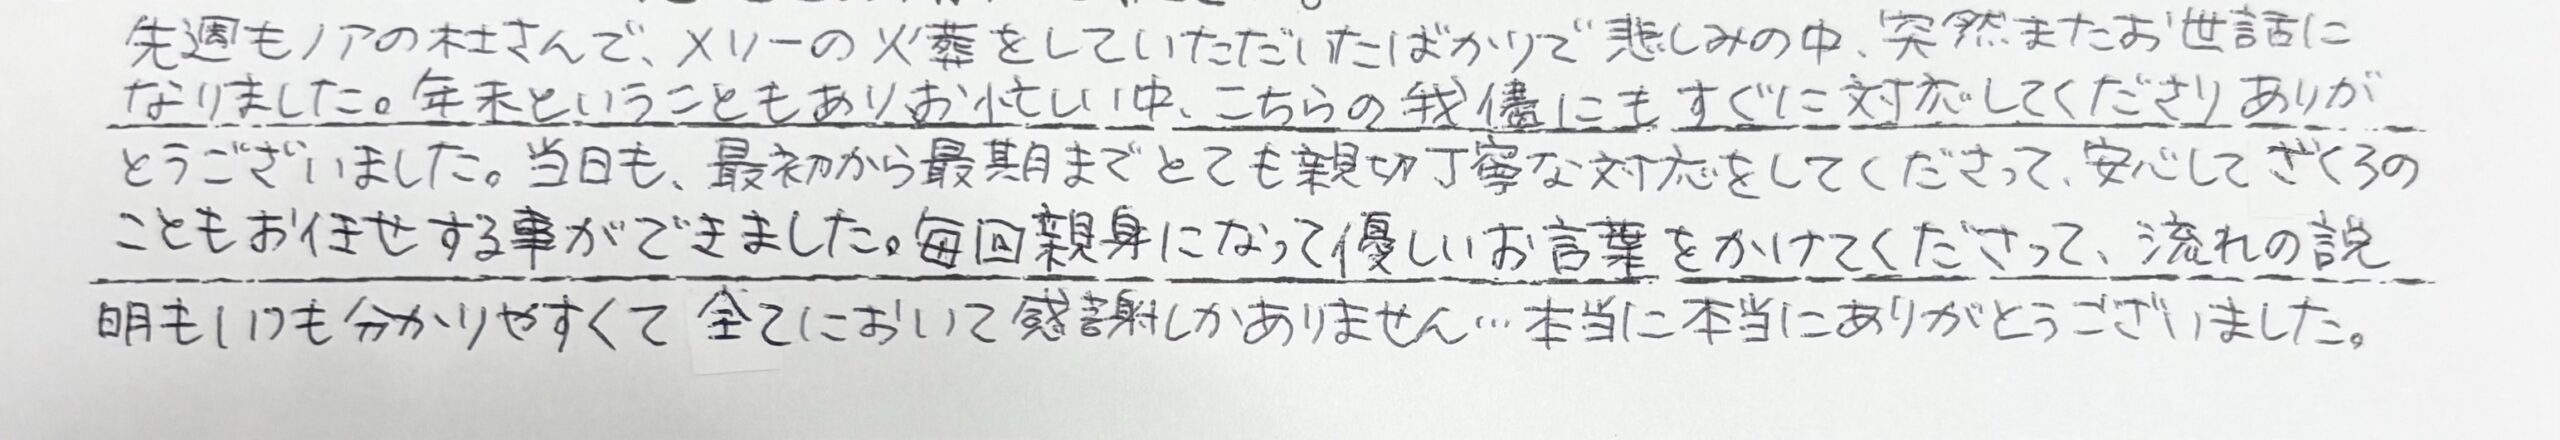 先週もノアの杜さんで、メリーの火葬をしていただいたばかりで悲しみの中、突然またお世話に
なりました。年末ということもありお忙しい中、こちらの我儘にもすぐに対応してくださりありが
とうございました。当日も、最初から最期までとても親切丁寧な対応をしてくださって、安心してざくろの
こともお任せする事ができました。毎回親身になって優しいお言葉をかけてくださって、流れの説
明もいつも分かりやすくて全てにおいて感謝しかありません…本当に本当にありがとうございました。